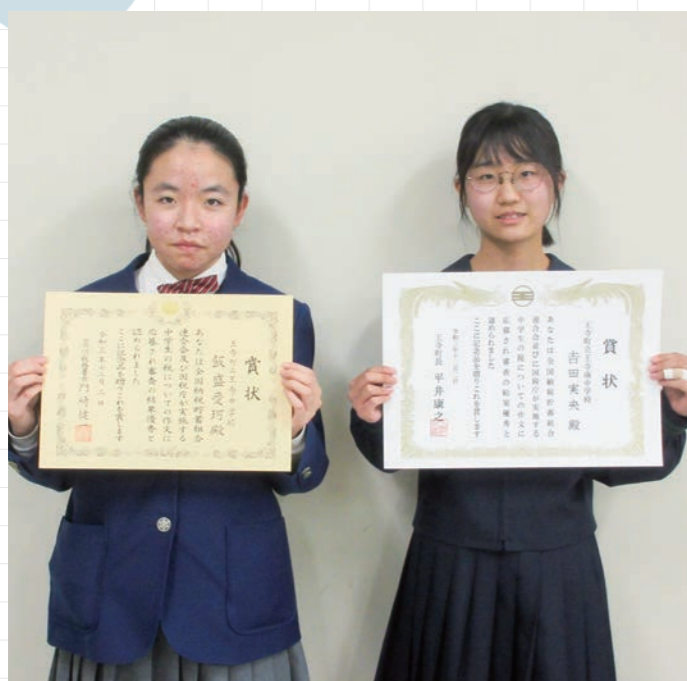 賞状
飯盛愛珂殿
あなたは全国納税貯蓄組合
連合会及び国税庁が実施する
中学生の税についての作文に
応募され審査の結果優秀と
認められました
ここに記念品を贈りこれを賞します
令和三年十二月二日
税務署長
賞状
王寺町立王寺南中学校
吉田実央 殿
あなたは全国納税貯蓄組合
連合会並びに国税庁が実施する
中学生の税についての作文に
応募され審査の結果優秀と
認められました
ここに記念品を贈りこれを賞します
王寺町長 平井康之